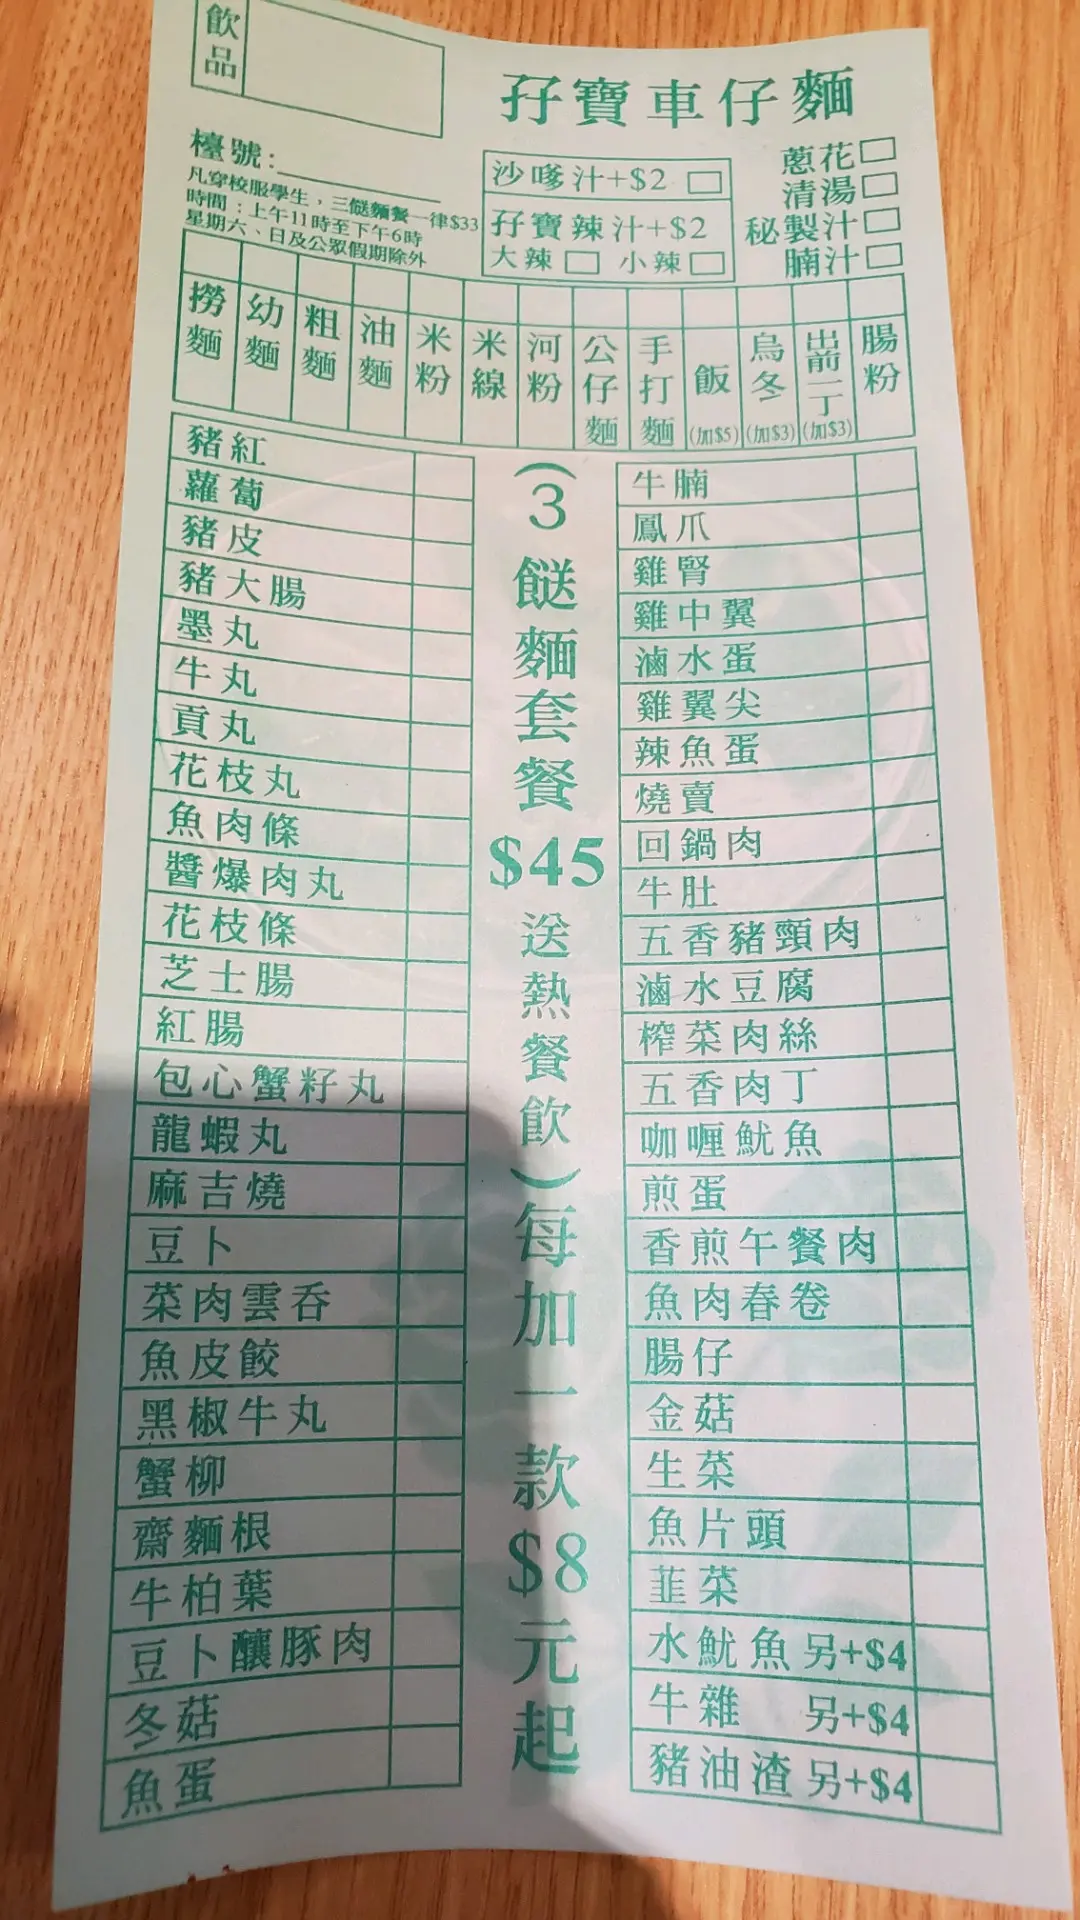 飲品
孖寶車仔麵
檯號:
凡穿校服學生，三餸麵餐一律$33
時間：上午11時至下午6時
星期六、日及公眾假期除外
沙嗲汁+$2
孖寶辣汁+$2
大辣 小辣
蔥花
清湯
秘製汁
腩汁
撈麵
幼麵
粗麵
油麵
米粉
米線
河粉
公仔麵
手打麵
飯(加$5)
烏冬(加$3)
出前一丁(加$3)
腸粉
豬紅
蘿蔔
豬皮
豬大腸
墨丸
牛丸
貢丸
花枝丸
魚肉條
醬爆肉丸
花枝條
芝士腸
紅腸
包心蟹籽丸
龍蝦丸
麻吉燒
豆卜
菜肉雲吞
魚皮餃
黑椒牛丸
蟹柳
齋麵根
牛柏葉
豆卜釀豚肉
冬菇
魚蛋
(3餸麵套餐$45送熱餐飲)每加一款$8元起
牛腩
鳳爪
雞腎
雞中翼
滷水蛋
雞翼尖
辣魚蛋
燒賣
回鍋肉
牛肚
五香豬頸肉
滷水豆腐
榨菜肉絲
五香肉丁
咖喱魷魚
煎蛋
香煎午餐肉
魚肉春卷
腸仔
金菇
生菜
魚片頭
韮菜
水魷魚另+$4
牛雜 另+$4
豬油渣另+$4